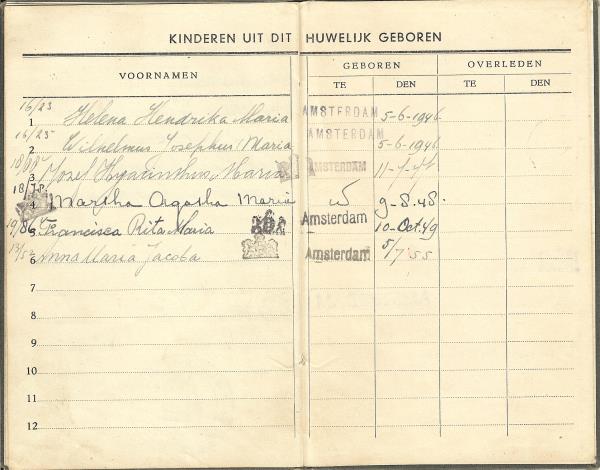 KINDEREN UIT DIT HUWELIJK GEBOREN
VOORNAMEN GEBOREN OVERLEDEN
TE DEN TE DEN
16/23
1 Helena Hendrika Maria AMSTERDAM 5-6-1946
16/25
2 Wilhelmus Josephus Maria AMSTERDAM 5-6-1946
3 Jozef Hyacinthus Maria AMSTERDAM
4 Martha Agatha Maria 9-8-48.
5 Francisca Rita Maria Amsterdam 10-Oct.49
6 Anna Maria Jacoba Amsterdam 5/7 55
7
8
9
10
11
12